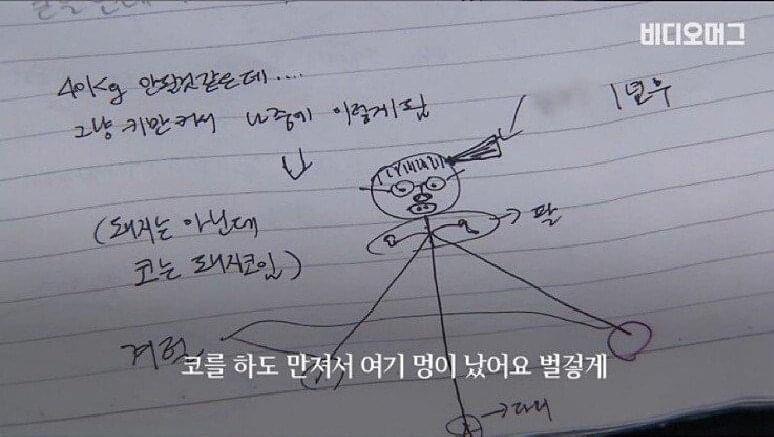 비디오머그
40kg 안될것같은데....
그냥 키만커서 나중에 이렇게됨
1년후
(돼지는 아닌데
코는 돼지코임)
팔
코를 하도 만져서 여기 멍이 났어요 벌겋게
다리